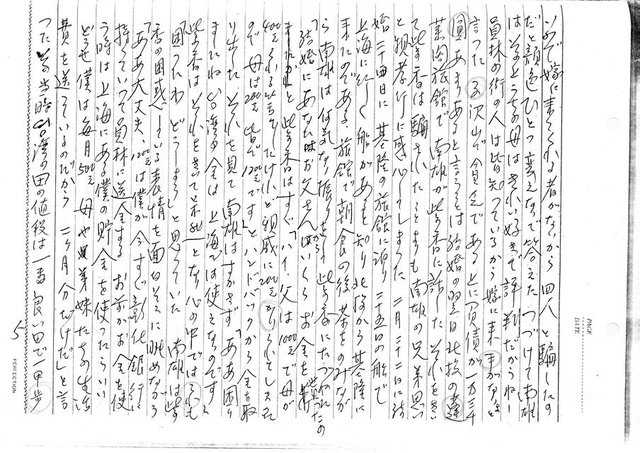 いので嫁に来てくれる者がないから四人と騙したの
だと顔色ひとつ変えないで答えた つづけて南雄
はそのうちの母はきれい好きで評判だがうね
員林の街の人は皆知っているから嫁に来手がないと
言った 子沢山で貧乏である上に負債が一万三千
圓あまりあると言うことは結婚の翌日北投の達
莱閣旅館で南雄が此の香に話した それをきい
て此の香は騙されたことよりも南雄の兄弟思い
と親孝行に感心してしまった 二月二十二日に結
婚 二十四日に基隆の旅館に泊り二十五日の船で
上海に行く 船があると知り 北投から基隆に
来たのである 旅館で朝食の後 茶をのみなが
ら南雄は何気ない振りをして此の香にたづねた
「結婚にあなたのお父さんからいくらお金を貰ったの
ますか」と 此の香はすぐ「ハイ、父は1000元で母が
400元くれると言いましたけれど親戚に200元かりられたとしえた
ので母は200元 皆で1200元です」とハンドバックから金を取
り出した それを見て南雄はすかさず「ああ困り
ましたね 台湾の金は上海では使えないのですよ」
此の香はそれをきいて早速となく心の中では「とても
困ったわ どうしよう」と思っていた 南雄は此
の香の困惑している表情を面白そうに眺めながら
「ああ大丈夫、1200元は僕が今すぐ彰化銀行に
持っていって員林に送金する お前がお金を使
う時は上海にある僕の貯金を使ったらいい
どうせ僕は毎月500元 母や兄弟妹たちの生活
費を送っているのだから 二ヶ月分だけだ」と言
った その当時台湾の田の値段は一番良い田で一甲歩
5
PAGE
DATE